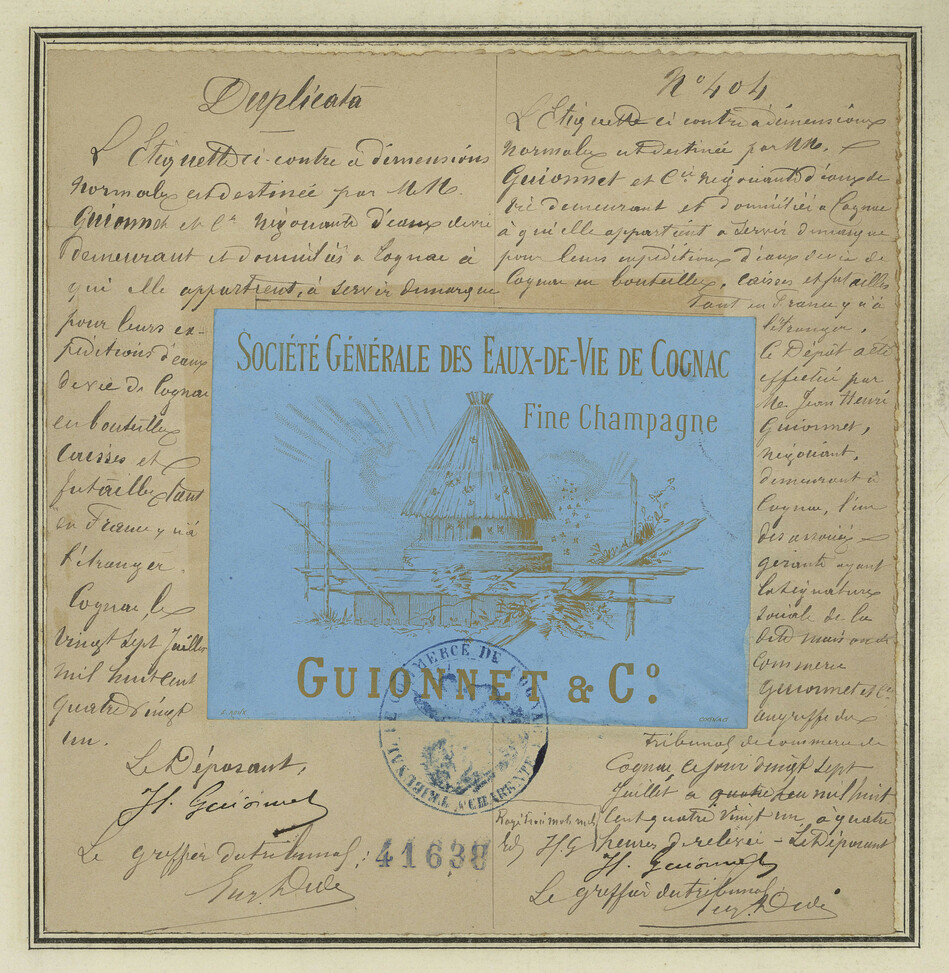 Duplicata
L'Etiquette ci-contre à démensions
normales est destinée par M.M.
Guionnet et Cie négociants d'eaux de vie
demeurant et domiciliés à Cognac à
qui elle appartient, à servir de marque
pour leurs ex-
péditions d'eaux
de vie de Cognac
en bouteilles
Caisses et
futailles tant
en France qu'à
l'étranger.
Cognac, le
vingt sept Juillet
mil huit cent
quatre vingt
un.
Le Déposant,
H. Guionnet
Le greffier du tribunal :
41638
No 404
L'Etiquette ci contre à démensions
normales est destinée par MM.
Guionnet et Cie négociants d'eaux de
vie demeurant et domiciliés à Cognac
à qui elle appartient à servir de marque
pour leurs expéditions d'eaux de vie de
Cognac en bouteilles, caisses et futailles
tant en France qu'à
l'étranger.
Le Dépôt a été
effectué par
Mr Jean Henri
Guionnet,
négociant,
demeurant à
Cognac, l'un
des associés
gérants ayant
la signature
sociale de la
dite maison de
Commerce
Guionnet et Cie
au greffe du
tribunal de commerce de
Cognac ce jour vingt sept
Juillet à quatre heu mil huit
Cent quatre vingt un, à quatre
heures de relevée - Le Déposant
H. G
H. Guionnet
Le greffier du tribunal
SOCIÉTÉ GÉNÉRALE DES EAUX-DE-VIE DE COGNAC
Fine Champagne
GUIONNET & Co.
TRIBUNAL DE COMMERCE DE COGNAC
CHARENTE